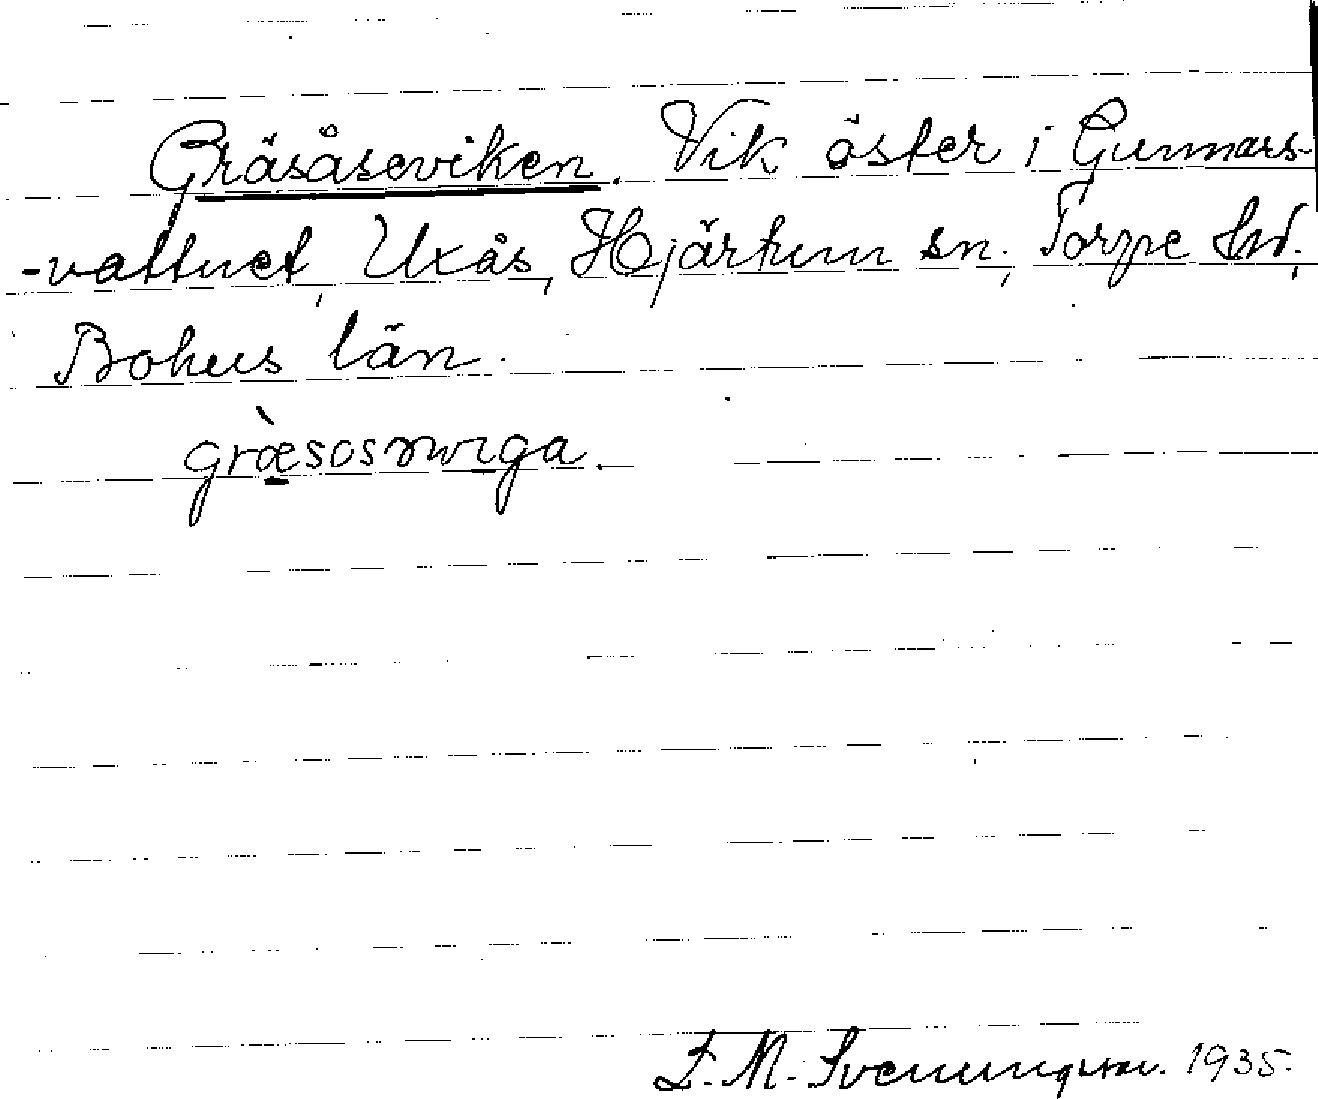 Gräsåseviken. Vik öster i Gunnars-
-vattnet, Uxås, Hjärtum sn., Torpe hd.,
Bohus län.
græsosəvıga.
F. M. Svenungsson. 1935.